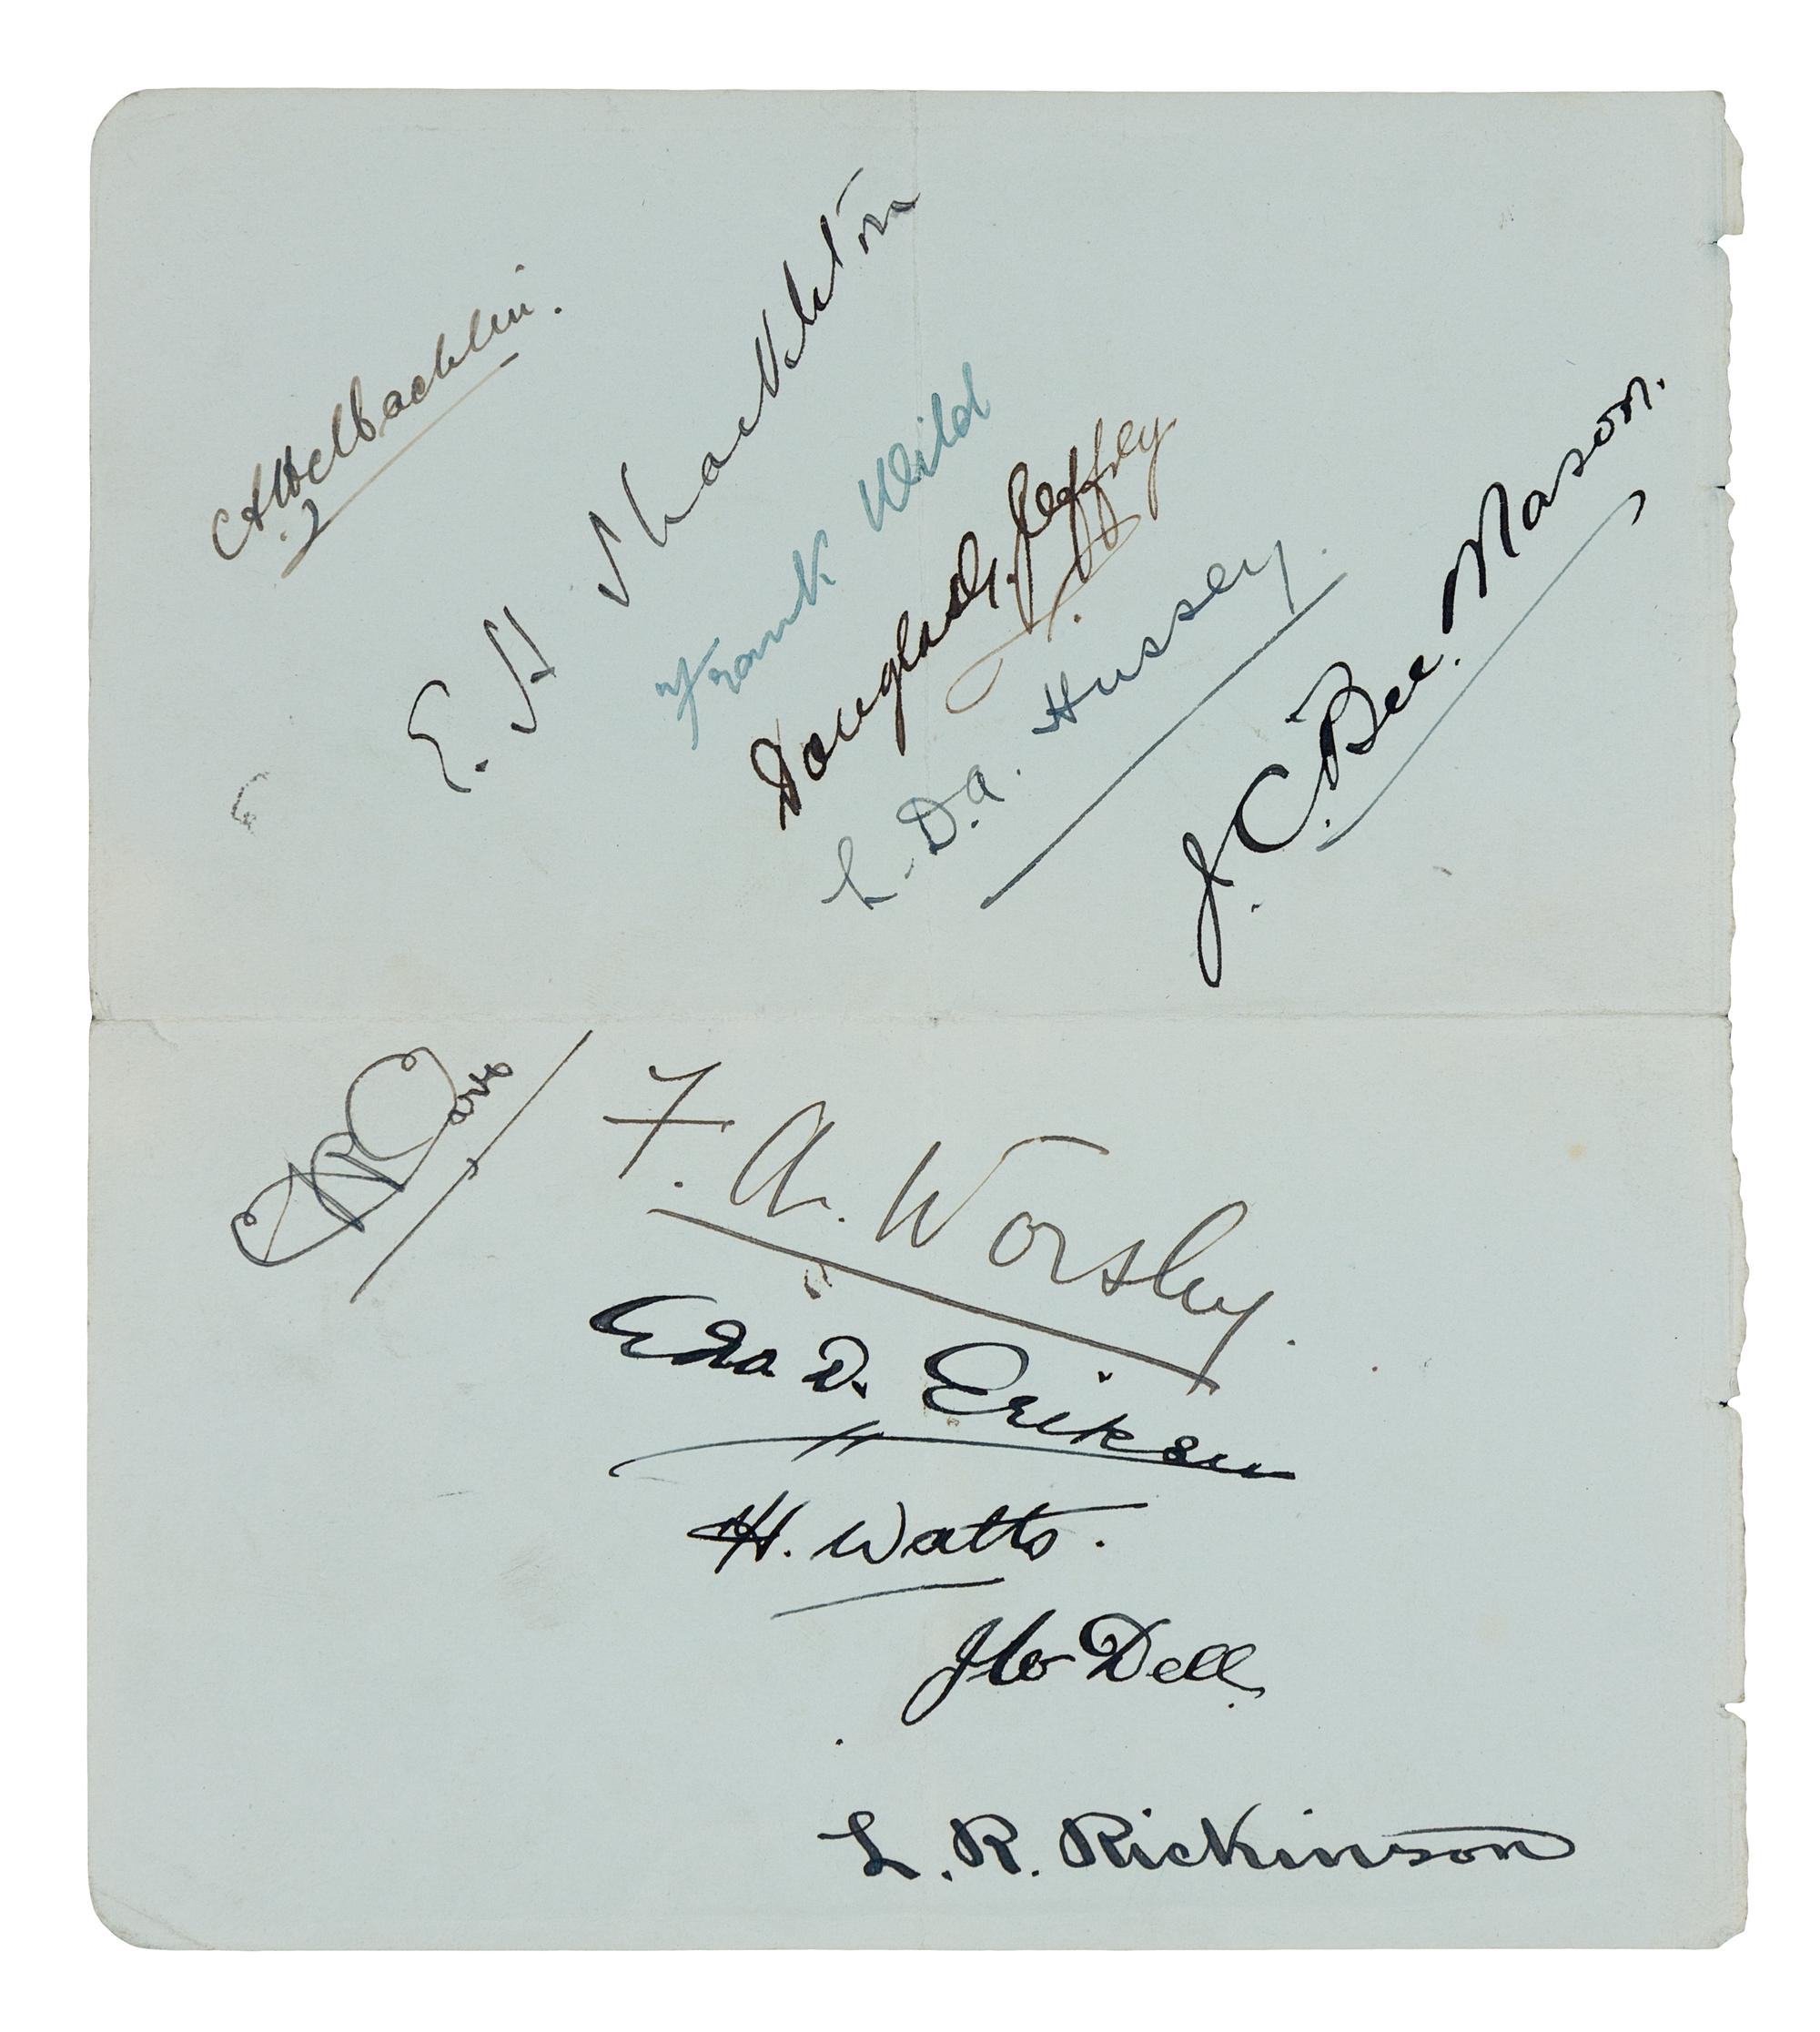 A H Macklin.
E. H Shackleton
Frank Wild
Douglas G. Jeffrey
L. D. A. Hussey.
J. C. Bee. Mason.
CR Carr
F. A. Worsley.
Edw D. Eriksen
H. Watts.
J Dell.
L. R. Rickinson